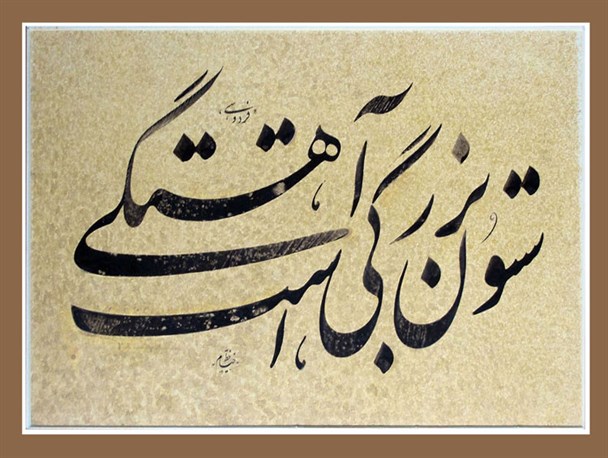 ستون بزرگی آهستگی است
فردوسی